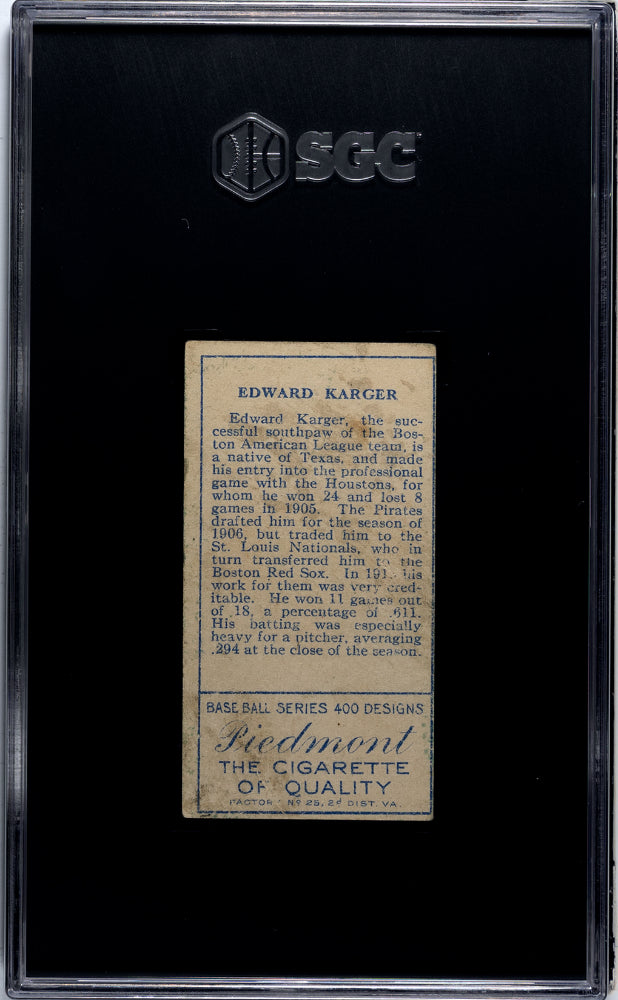 SGC
EDWARD KARGER
Edward Karger, the suc-
cessful southpaw of the Bos-
ton American League team, is
a native of Texas, and made
his entry into the professional
game with the Houstons, for
whom he won 24 and lost 8
games in 1905. The Pirates
drafted him for the season of
1906, but traded him to the
St. Louis Nationals, who in
turn transferred him to the
Boston Red Sox. In his
work for them was very cred-
itable. He won 11 games out
of 18, a percentage of .611.
His batting was especially
heavy for a pitcher, averaging
.294 at the close of the season.
BASE BALL SERIES 400 DESIGNS
Piedmont
THE CIGARETTE
OF QUALITY
FACTORY Nº 25, 2d DIST. VA.